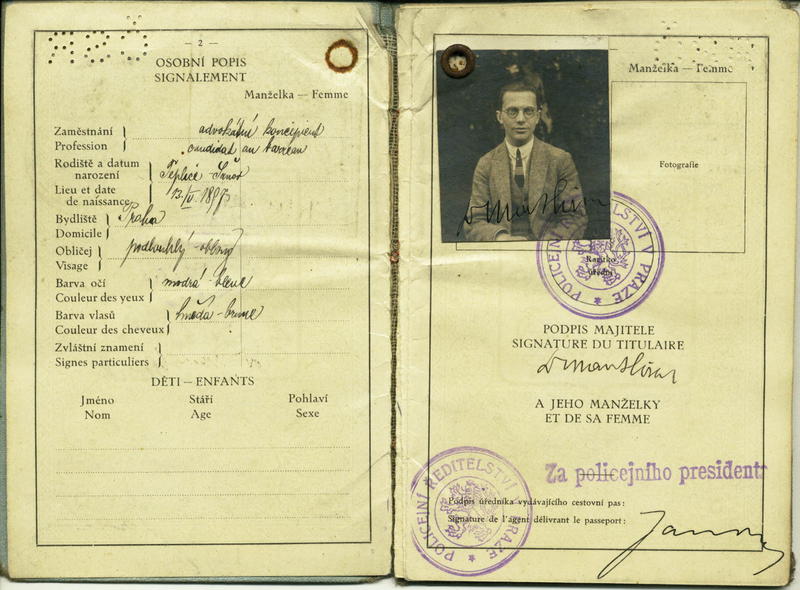 — 2 —
OSOBNÍ POPIS
SIGNALEMENT
Manželka — Femme
Zaměstnání
Profession
advokátní koncipient
candidat au barreau
Rodiště a datum
narození
Lieu et date
de naissance
Teplice - Šanov
13/IV. 1897
Bydliště
Domicile
Praha
Obličej
Visage
podlouhlý - oblong
Barva očí
Couleur des yeux
modrá - bleue
Barva vlasů
Couleur des cheveux
hnědá - brune
Zvláštní znamení
Signes particuliers
DĚTI — ENFANTS
Jméno Stáří Pohlaví
Nom Age Sexe
Manželka — Femme
Fotografie
POLICEJNÍ ŘEDITELSTVÍ V PRAZE
Razítko
úřední
PODPIS MAJITELE
SIGNATURE DU TITULAIRE
A JEHO MANŽELKY
ET DE SA FEMME
Za policejního presidenta
POLICEJNÍ ŘEDITELSTVÍ V PRAZE
Podpis úředníka vydávajícího cestovní pas:
Signature de l'agent délivrant le passeport: